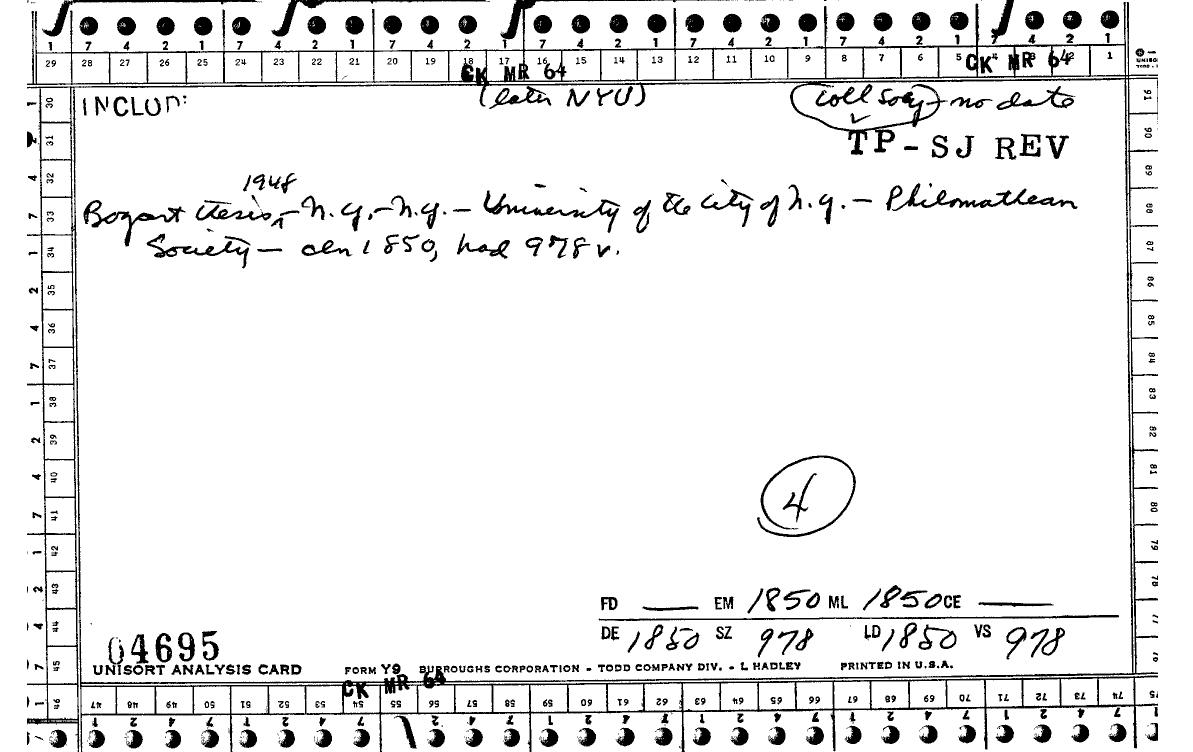 1 7 4 2 1 7 4 2 1 7 4 2 1 7 4 2 1 7 4 2 1 7 4 2 1 7 4 2 1
29 28 27 26 25 24 23 22 21 20 19 18 17 16 15 14 13 12 11 10 9 8 7 6 5 4 3 2 1
CK MR 64 CK MR 64
INCLUD: (later NYU) Coll Socy - no date
TP - SJ REV
1948
Bogart thesis, - N.Y. - N.Y. - University of the City of N.Y. - Philomathean
Society - in 1850, had 978 v.
4
FD EM 1850 ML 1850 CE
DE 1850 SZ 978 LD 1850 VS 978
04695
UNISORT ANALYSIS CARD FORM Y9 BURROUGHS CORPORATION - TODD COMPANY DIV. - L HADLEY PRINTED IN U.S.A.
CK MR 64
30 31 32 33 34 35 36 37 38 39 40 41 42 43 44 45 46
91 90 89 88 87 86 85 84 83 82 81 80 79 78 77 76 75
47 48 49 50 51 52 53 54 55 56 57 58 59 60 61 62 63 64 65 66 67 68 69 70 71 72 73 74